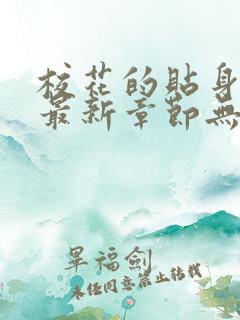 校花的貼身
最新章節無
旱福劍
未经同意禁止转载